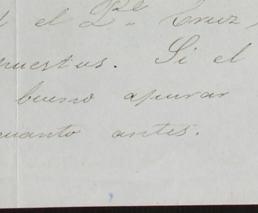 el Pbro. Cruz
puestas. Si el
bueno apurar
cuanto antes.